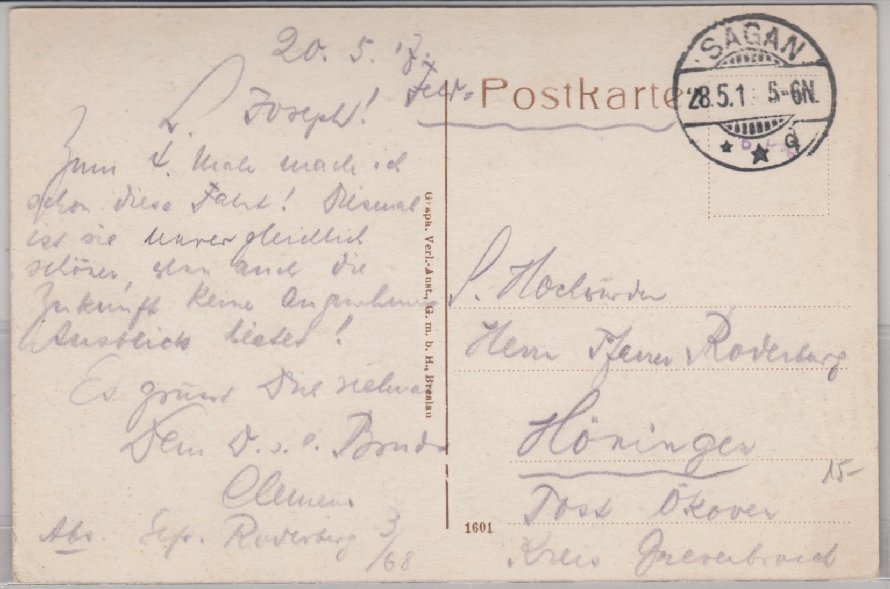 20. 5. 17.
Feld-Postkarte
SAGAN
28.5.1 5-6N.
L. Joseph!
Zum 4. Male mach ich
schon diese Fahrt! Diesmal
ist sie unvergleichlich
schöner, wenn auch die
Zukunft keine angenehmen
Ausblick bietet!
Es grüsst Dich vielmals
Dein Bruder
Clemens
Abs. Roderburg 3/68
Graph. Verl.-Anst., G. m. b. H., Breslau
1601
S. Hochwürden
Herrn Pfarrer Roderburg
Höningen
Post Ökoven
Kreis Grevenbroich
15-